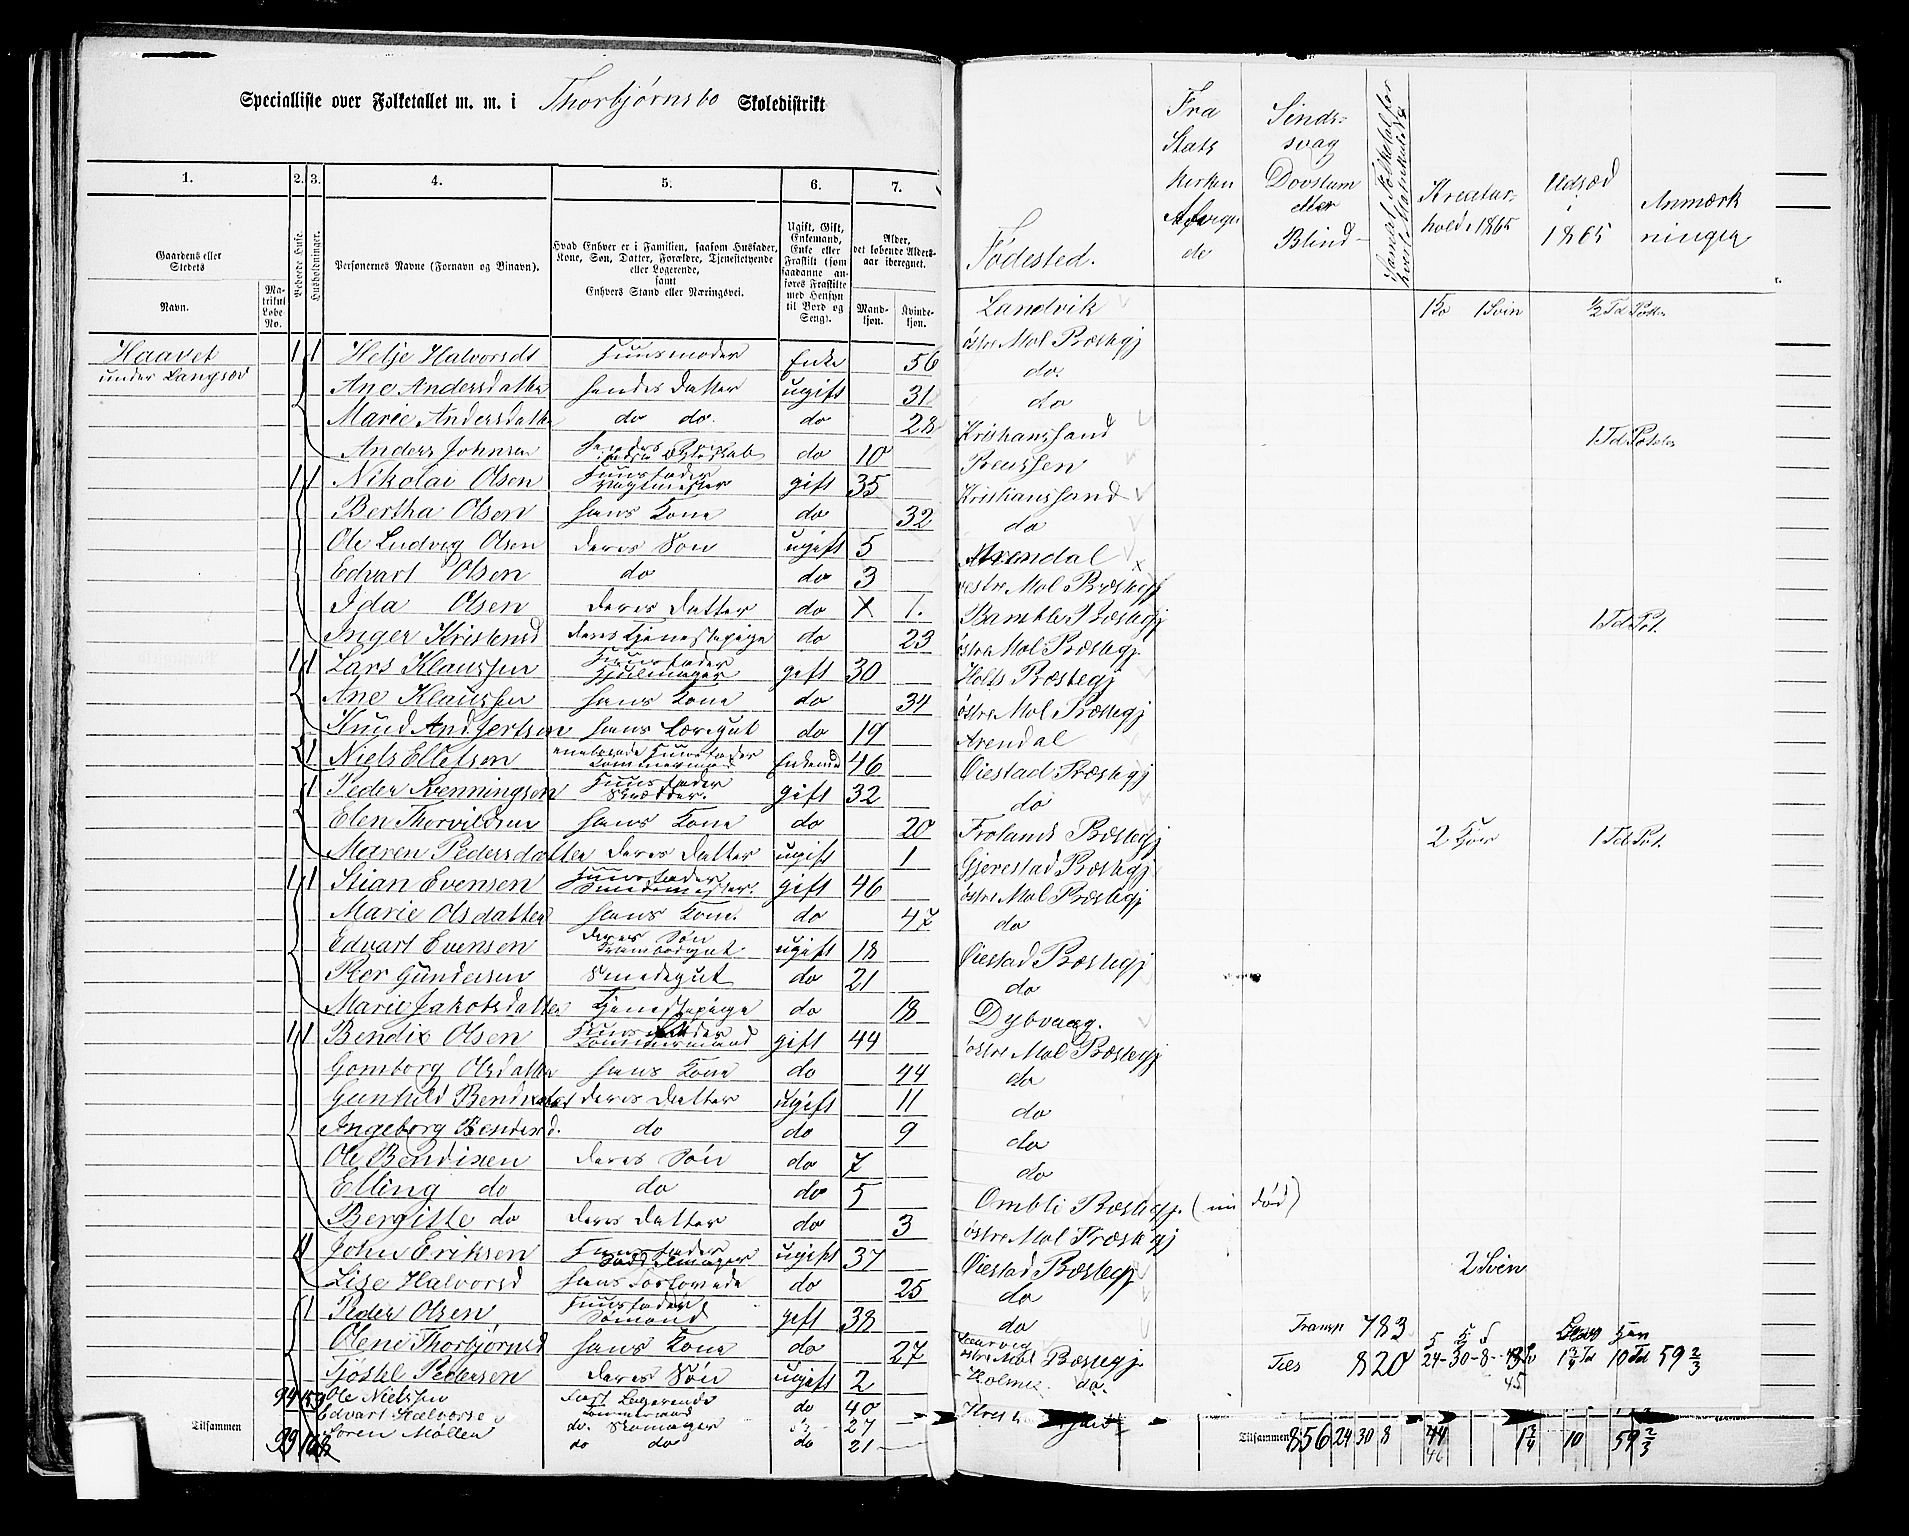 Specialliste over Folketallet m. m. i Thorbjørnsbo Skoledistrikt
1. 2. 3. 4. 5. 6. 7.
Gaardens eller Stedets
Navn.
Matrikul Løbe No.
Beboede Huse.
Husholdninger.
Personernes Navne (Fornavn og Binavn).
Hvad Enhver er i Familien, saasom Husfader, Kone, Søn, Datter, Forældre, Tjenestetyende eller Logerende, samt Enhvers Stand eller Næringsvei.
Ugift, Gift, Enkemand, Enke eller Fraskilt (som saadanne anføres Fraskilte med Hensyn til Bord og Seng).
Alder, det løbende Alders-aar iberegnet.
Mand-kjøn. Kvinde-kjøn.
Fødested.
Fra Stats Kirken Afvigende
Sindssvag Døvstum eller Blind
Samlet Folketal for hvert Matrikul No
Kreaturhold i 1865
Udsæd i 1865
Anmærkninger
Haavet 1 1 Helje Halvorsdt Huusmoder Enke 56
under Langsæd
Ane Andersdatter hendes Datter ugift 31
Maree Andersdatter do do. do 28
Anders Johnsen do 10
1 1 Nikolai Olsen Huusfader gift 35
Bertha Olsen hans Kone do 32
Ole Ludvig Olsen deres Søn ugift 5
Edvart Olsen do do 3
Ida Olsen deres Datter do x 1.
Inger Kristensd deres Tjenestepige do 23
1 1 Lars Klaussen Huusfader Hjulmager gift 30
Ane Klaussen hans Kone do 34
Knud Andfertsen hans Læregut do 19
2 1 Niels Ellefsen Huusfader Tømmermand Enkemd 46
1 Peder Svenningsen Huusfader Skrædder. gift 32
Elen Thorvildsen hans Kone do 20
Maren Pedersdatter deres Datter ugift 1
1 1 Stian Evensen Huusfader Smedemester. gift 46
Marie Olsdatter hans Kone. do 47
Edvart Evensen deres Søn ugift 18
Peer Gundersen Smedegut do 21
Marie Jakobsdatter Tjenestepige do 18
1 1 Bendix Olsen Huusfader Tømmermand gift 44
Gomborg Olsdatter hans Kone do 44
Gunhild Bendixdat deres Datter ugift 11
Ingeborg Bendixd. do do 9
Ole Bendixen deres Søn do 7
Elling do do do 5
Bergitte do deres Datter do 3
1 John Eriksen Huusfader Saddelmager ugift 37
Lise Halvorsd hans Forlovede do 25
1 Peder Olsen Huusfader Sømand gift 38
Olene Thorbjørnsd hans Kone do 27
Kjøstel Pedersen deres Søn ugift 2
94 159 Ole Nielssen Fast Logerende Tømmermand do 40
Edvart Halvorse do. Skomager 27
Tilsammen 99 162 Søren Møller do do do 21
Landvik 1 Ko 1 Svin 1/2 Td Poteter
østre Mol Præstegj
do.
do
Kristianssand 1 Td Poteter
Preussen
Kristianssand
do
Arendal
vestre Mol Præstegj
Bamble Præstegj 1 Td Pot.
østre Mol Præstegj
Holts Præstegj
østre Mol Præstegj
Arendal
Øiestad Præstegj
do
Frolands Præstegj 2 Kjør 1 Td Pot.
Gjerestad Præstegj
østre Mol Præstegj
do
Øiestad Præstegj
do
Dybvaag.
østre Mol Præstegj
do
do
do
do
Ombli Præstegj. (nu død)
østre Mol Præstegj
Øiestad Præstegj 2 Svin
do
do Transp 783
østre Mol Præstegj. Tils 820 24-30-8- 10 Td 59 2/3
Holme do. 45
Tilsammen 856 24 30 8 44 1 3/4 10 59 2/3
46